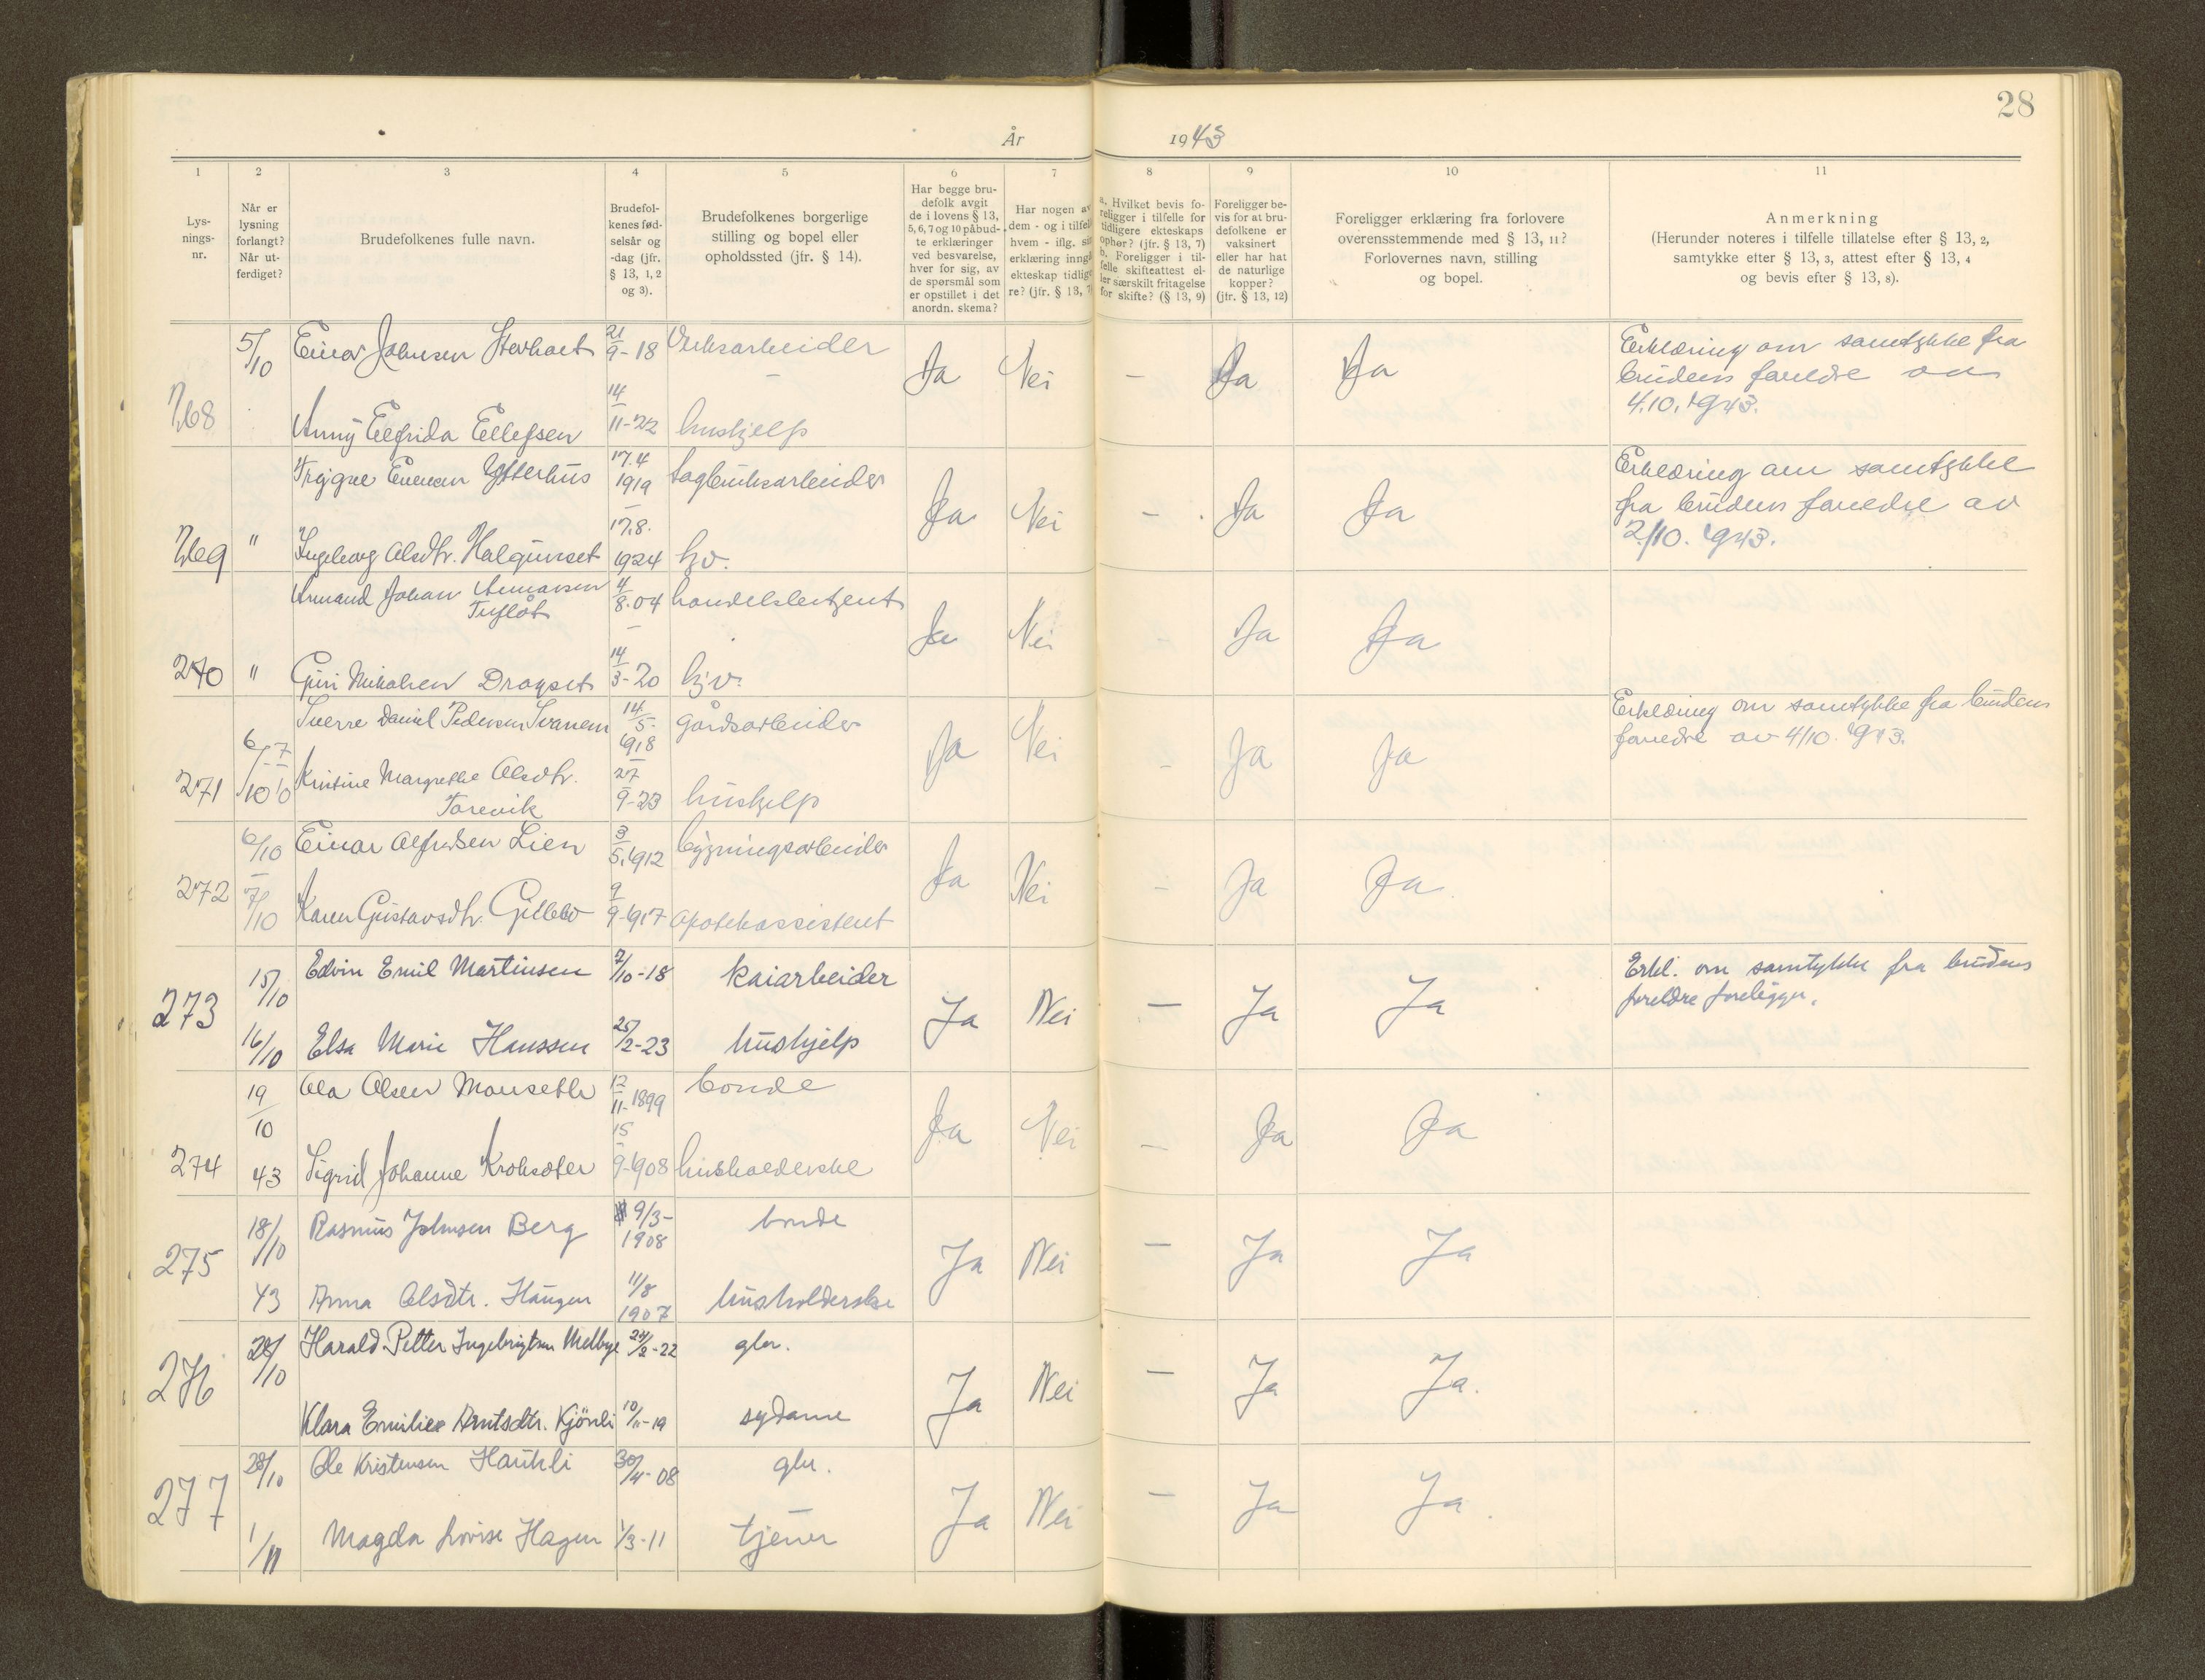 28
År 1943
1 2 3 4 5 6 7 8 9 10 11
Lys-
nings-
nr.
Når er
lysning
forlangt?
Når ut-
ferdiget?
Brudefolkenes fulle navn.
Brudefol-
kenes fød-
selsår og
-dag (jfr.
§ 13, 1, 2
og 3).
Brudefolkenes borgerlige
stilling og bopel eller
opholdssted (jfr. § 14).
Har begge bru-
defolk avgit
de i lovens § 13,
5, 6, 7 og 10 påbud-
te erklæringer
ved besvarelse,
hver for sig, av
de spørsmål som
er opstillet i det
anordn. skema?
Har nogen av
dem - og i tilfell
hvem - iflg. sin
erklæring inngå
ekteskap tidlige
re? (jfr. § 13, 7
a. Hvilket bevis fo-
religger i tilfelle for
tidligere ekteskaps
ophør? (jfr. § 13, 7)
b. Foreligger i til-
felle skifteattest el-
ler særskilt fritagelse
for skifte? (§ 13, 9)
Foreligger be-
vis for at bru-
defolkene er
vaksinert
eller har hat
de naturlige
kopper?
(jfr. § 13, 12)
Foreligger erklæring fra forlovere
overensstemmende med § 13, 11?
Forlovernes navn, stilling
og bopel.
Anmerkning
(Herunder noteres i tilfelle tillatelse efter § 13, 2,
samtykke etter § 13, 3, attest efter § 13, 4
og bevis efter § 13, 8).
268 5/10 Einar Johnsen 21/9-18
Ja Nei — Ja Ja
Erklæring om samtykke fra
brudens foreldre av
4.10.1943.
Anny Elfrida Ellefsen 14/11-22 hushjelp
269 " Trygve Evensen Ytterhus 17.4 1919 sagbruksarbeider
Ja Nei — Ja Ja
Erklæring om samtykke
fra brudens foreldre av
2/10. 1943.
Ingeborg Olsdtr. Halgunset 17.8. 1924 hv.
270 " Armand Johan 4/8.04 handelsbetjent
Ja Nei — Ja Ja
Guri Mikalsen Dragset 14/3-20 hjv.
271 6/10 7/10 Sverre Daniel Pedersen Svanem 14/5-1918 gårdsarbeider
Ja Nei — Ja Ja
Erklæring om samtykke fra brudens
foreldre av 4/10. 1943.
Kristine Margrethe Olsdtr.
Torevik 27/9-23 hushjelp
272 6/10 Einar Alfredsen Lien 3/5.1912 bygningsarbeider
Ja Nei — Ja Ja
7/10 Karen Gustavsdtr. 9/9-1917 apotekassistent
273 15/10 Edvin Emil Martinsen 7/10-18 kaiarbeider
Ja Nei — Ja Ja
Erkl. om samtykke fra brudens
foreldre foreligger.
16/10 Elsa Marie Hanssen 25/2-23 hushjelp
274 19/10 43 Ola Olsen Mausethe 12/11-1899 bonde
Ja Nei — Ja Ja
Sigrid Johanne Kroksæter 15/9-1908 husholderske
275 18/10 43 Rasmus Johnsen Berg 9/3-1908 bonde
Ja Nei — Ja Ja
Anna Olsdtr. Haugen 11/8 1907 husholderske
276 28/10 Harald Petter Ingebrigtsen Melbye 24/2-22 gbr.
Ja Nei — Ja Ja.
Klara Emilie Arntsdtr. Kjönli 10/11-19 sydame
277 28/10 Ole Kristensen Haukli 30/4-08 gbr.
Ja Nei — Ja Ja.
1/11 Magda Lovise Hagen 1/3-11 tjener